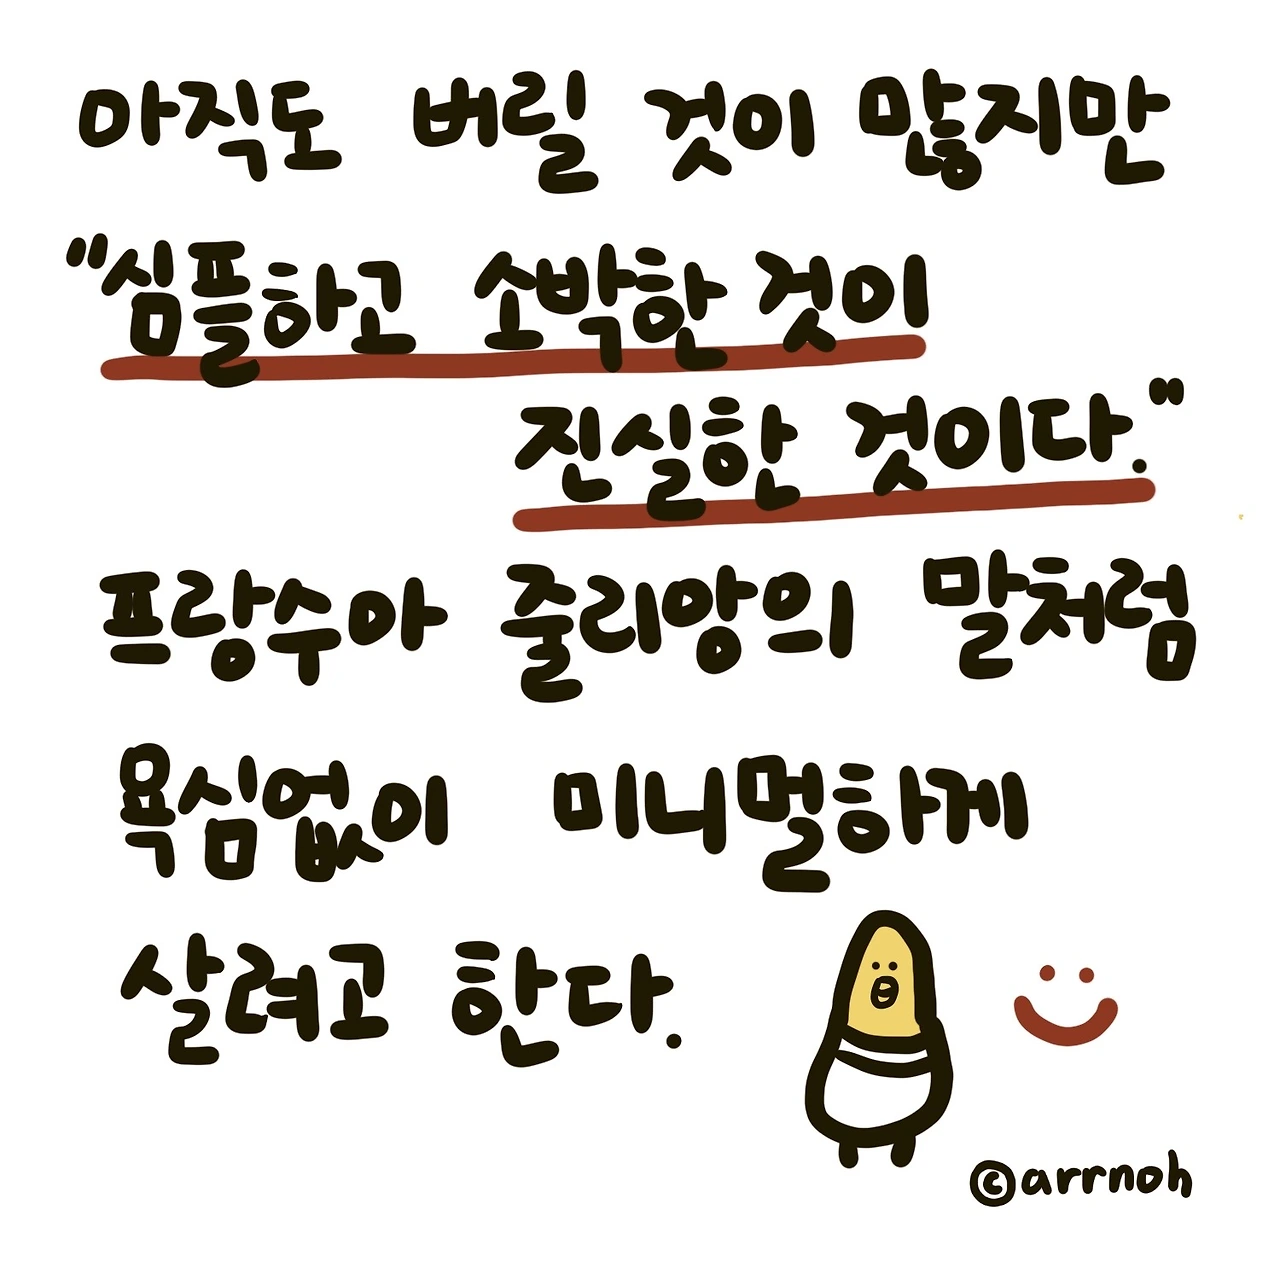 아직도 버릴 것이 많지만
"심플하고 소박한 것이
진실한 것이다."
프랑수아 줄리앙의 말처럼
욕심없이 미니멀하게
살려고 한다.
©arrnoh